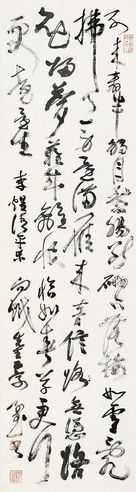 別來春半觸目愁腸斷砌下落梅如雪亂
拂了一身還滿雁來音信無憑路
遙歸夢難成離恨恰如春草更行
更遠還生 李煜清平樂